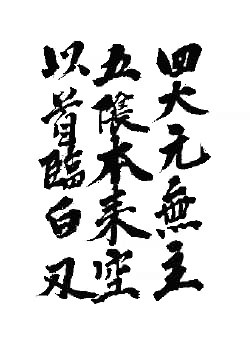 四大元無主
五陰本来空
以首臨白刃